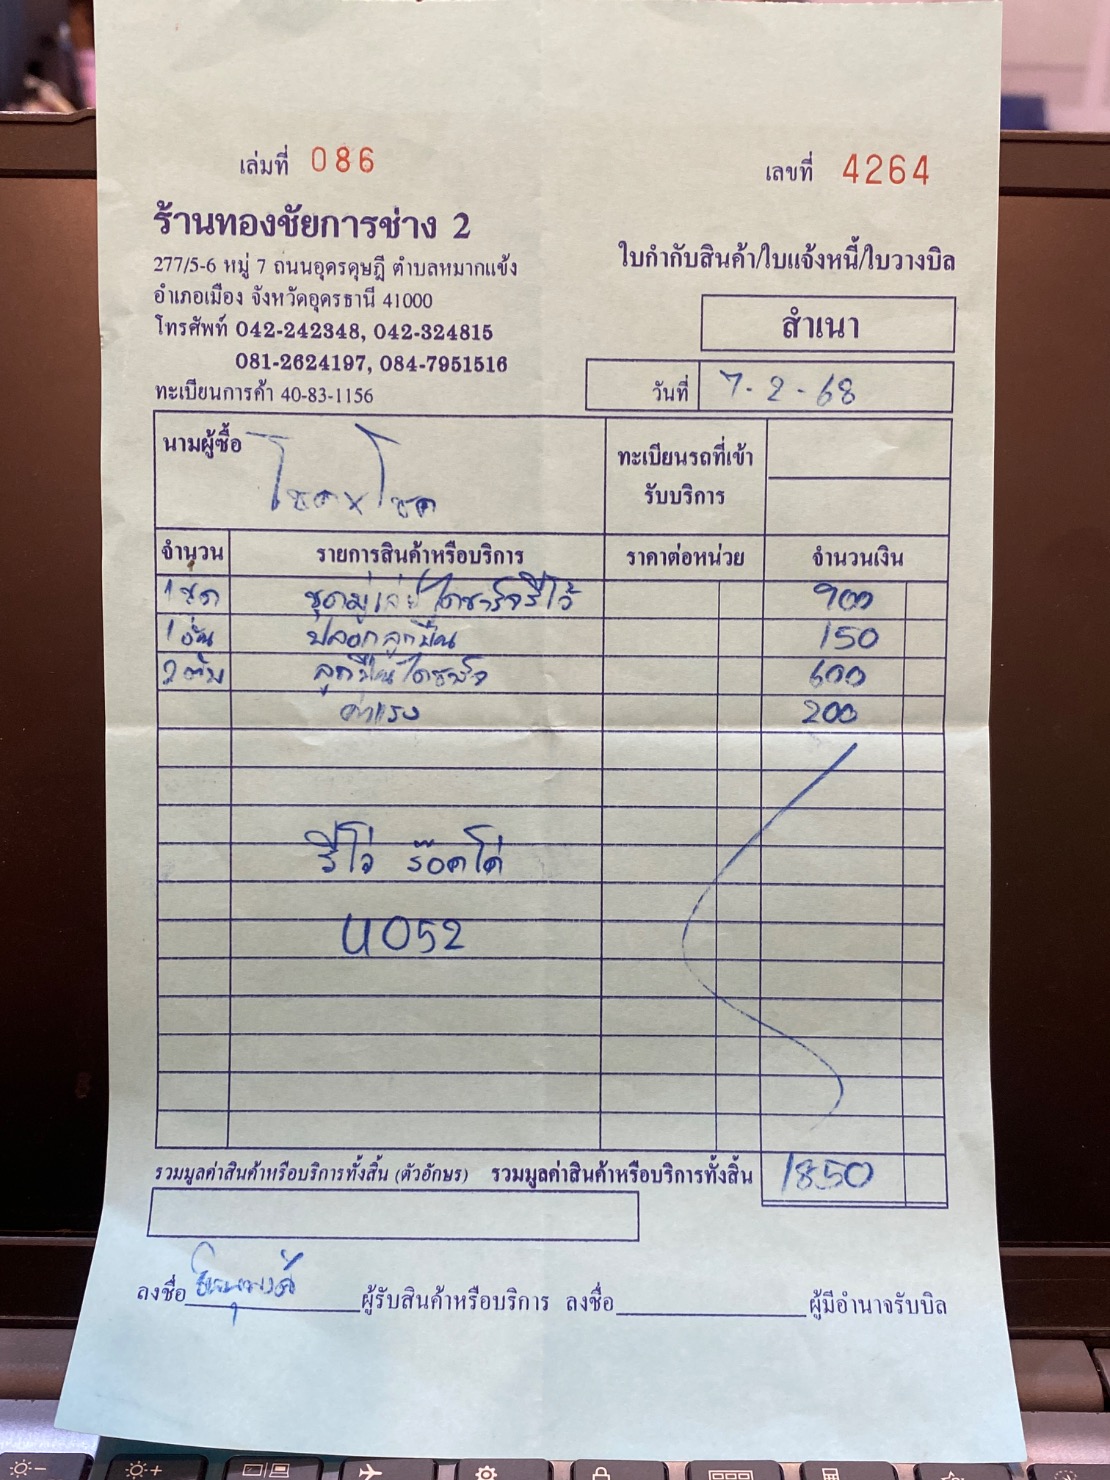 เล่มที่ 086
เลขที่ 4264
ร้านทองชัยการช่าง 2
277/5-6 หมู่ 7 ถนนอุดรดุษฎี ตำบลหมากแข้ง
อำเภอเมือง จังหวัดอุดรธานี 41000
โทรศัพท์ 042-242348, 042-324815
081-2624197, 084-7951516
ทะเบียนการค้า 40-83-1156
ใบกำกับสินค้า/ใบแจ้งหนี้/ใบวางบิล
สำเนา
วันที่ 7-2-68
นามผู้ซื้อ โชคxโชค
ทะเบียนรถที่เข้า
รับบริการ
จำนวน รายการสินค้าหรือบริการ ราคาต่อหน่วย จำนวนเงิน
1 ชุด ไดชาร์จรีโว้ 900
1 อัน ปลอกลูกปืน 150
2 ตับ ลูกปืนไดชาร์จ 600
ค่าแรง 200
รีโว่ ร๊อคโค่
4052
รวมมูลค่าสินค้าหรือบริการทั้งสิ้น (ตัวอักษร) รวมมูลค่าสินค้าหรือบริการทั้งสิ้น 1850
ลงชื่อ ผู้รับสินค้าหรือบริการ ลงชื่อ ผู้มีอำนาจรับบิล